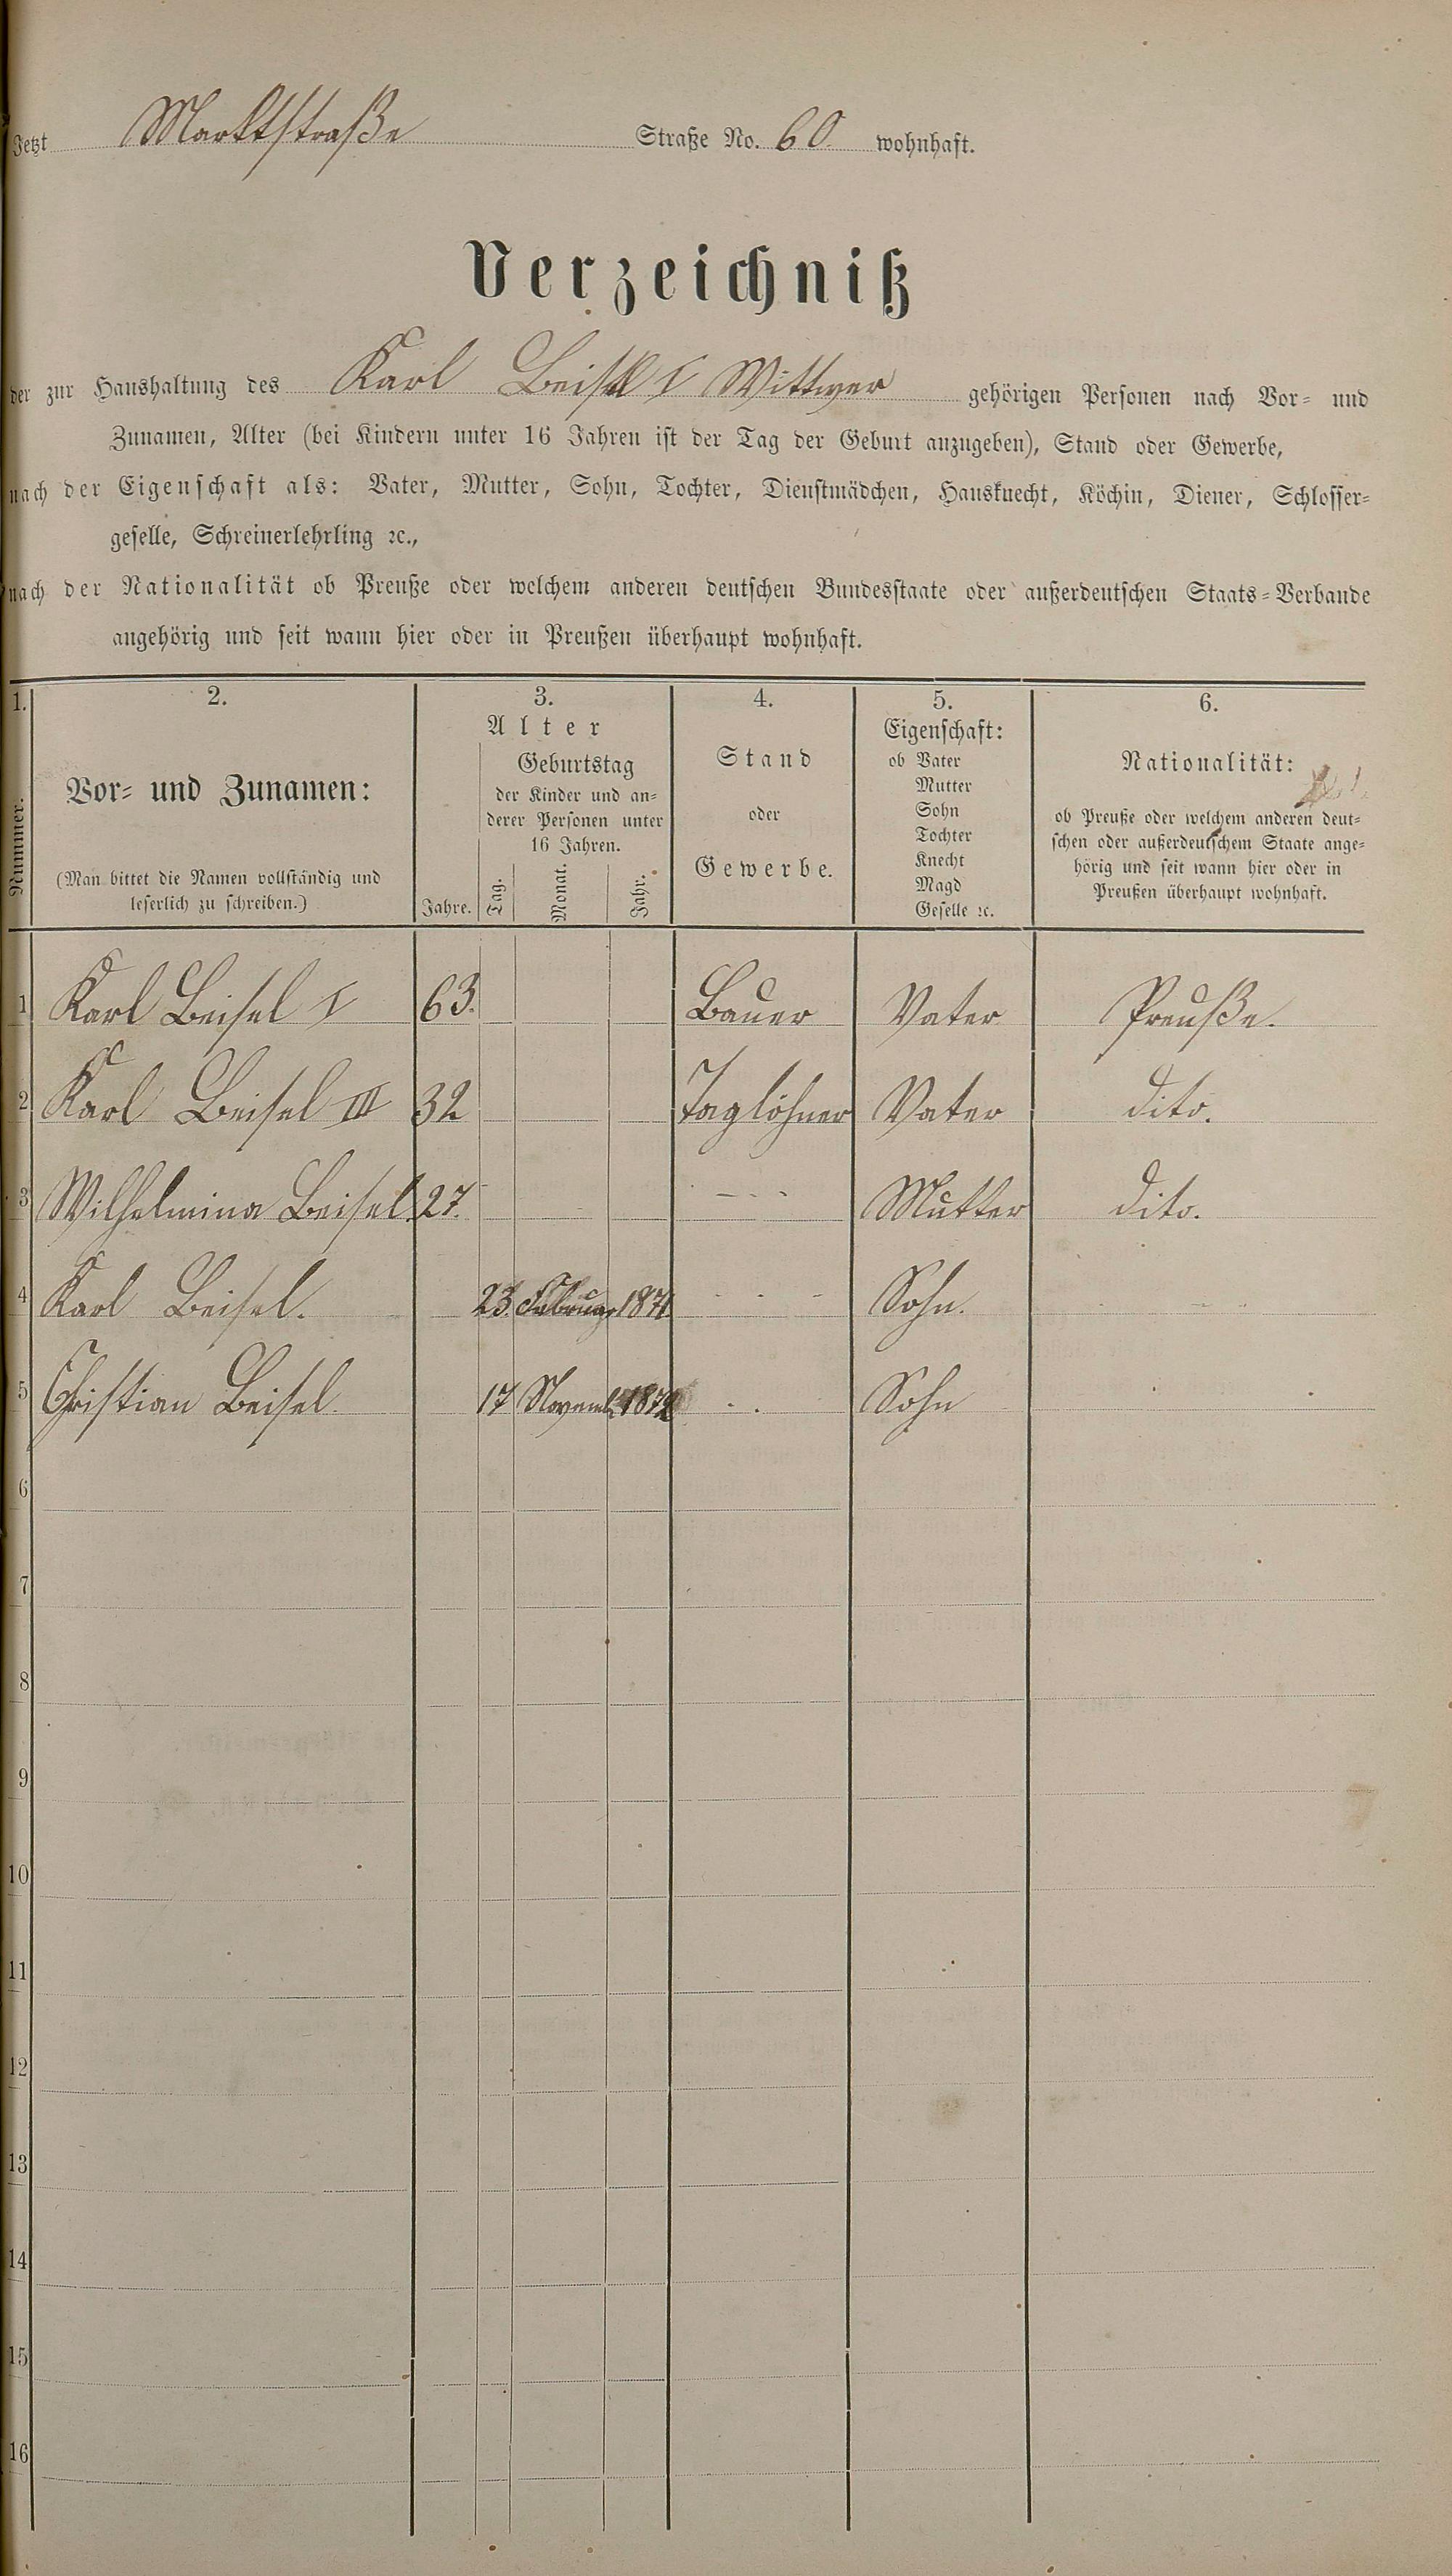 Jetzt Marktstraße Straße No. 60 wohnhaft.
Verzeichniß
der zur Haushaltung des Karl Beisel I Wittwer gehörigen Personen nach Vor- und
Zunamen, Alter (bei Kindern unter 16 Jahren ist der Tag der Geburt anzugeben), Stand oder Gewerbe,
nach der Eigenschaft als: Vater, Mutter, Sohn, Tochter, Dienstmädchen, Hausknecht, Köchin, Diener, Schlosser-
geselle, Schreinerlehrling ꝛc.,
nach der Nationalität ob Preuße oder welchem anderen deutschen Bundesstaate oder außerdeutschen Staats-Verbande
angehörig und seit wann hier oder in Preußen überhaupt wohnhaft.
1.
Nummer.
2.
Vor- und Zunamen:
(Man bittet die Namen vollständig und
leserlich zu schreiben.)
3.
Alter
Jahre.
Geburtstag
der Kinder und an-
derer Personen unter
16 Jahren.
Tag.
Monat.
Jahr.
4.
Stand
oder
Gewerbe.
5.
Eigenschaft:
ob Vater
Mutter
Sohn
Tochter
Knecht
Magd
Geselle ꝛc.
6.
Nationalität:
ob Preuße oder welchem anderen deut-
schen oder außerdeutschem Staate ange-
hörig und seit wann hier oder in
Preußen überhaupt wohnhaft.
1 Karl Beisel I 63. Bauer Vater Preuße.
2 Karl Beisel III 32 Taglöhner Vater dito.
3 Wilhelmina Beisel. 27. - - - Mutter dito.
4 Karl Beisel. 23. Februar 1871 - - - Sohn. - - -
5 Christian Beisel. 17 Novemb. 1872 - - Sohn
6
7
8
9
10
11
12
13
14
15
16